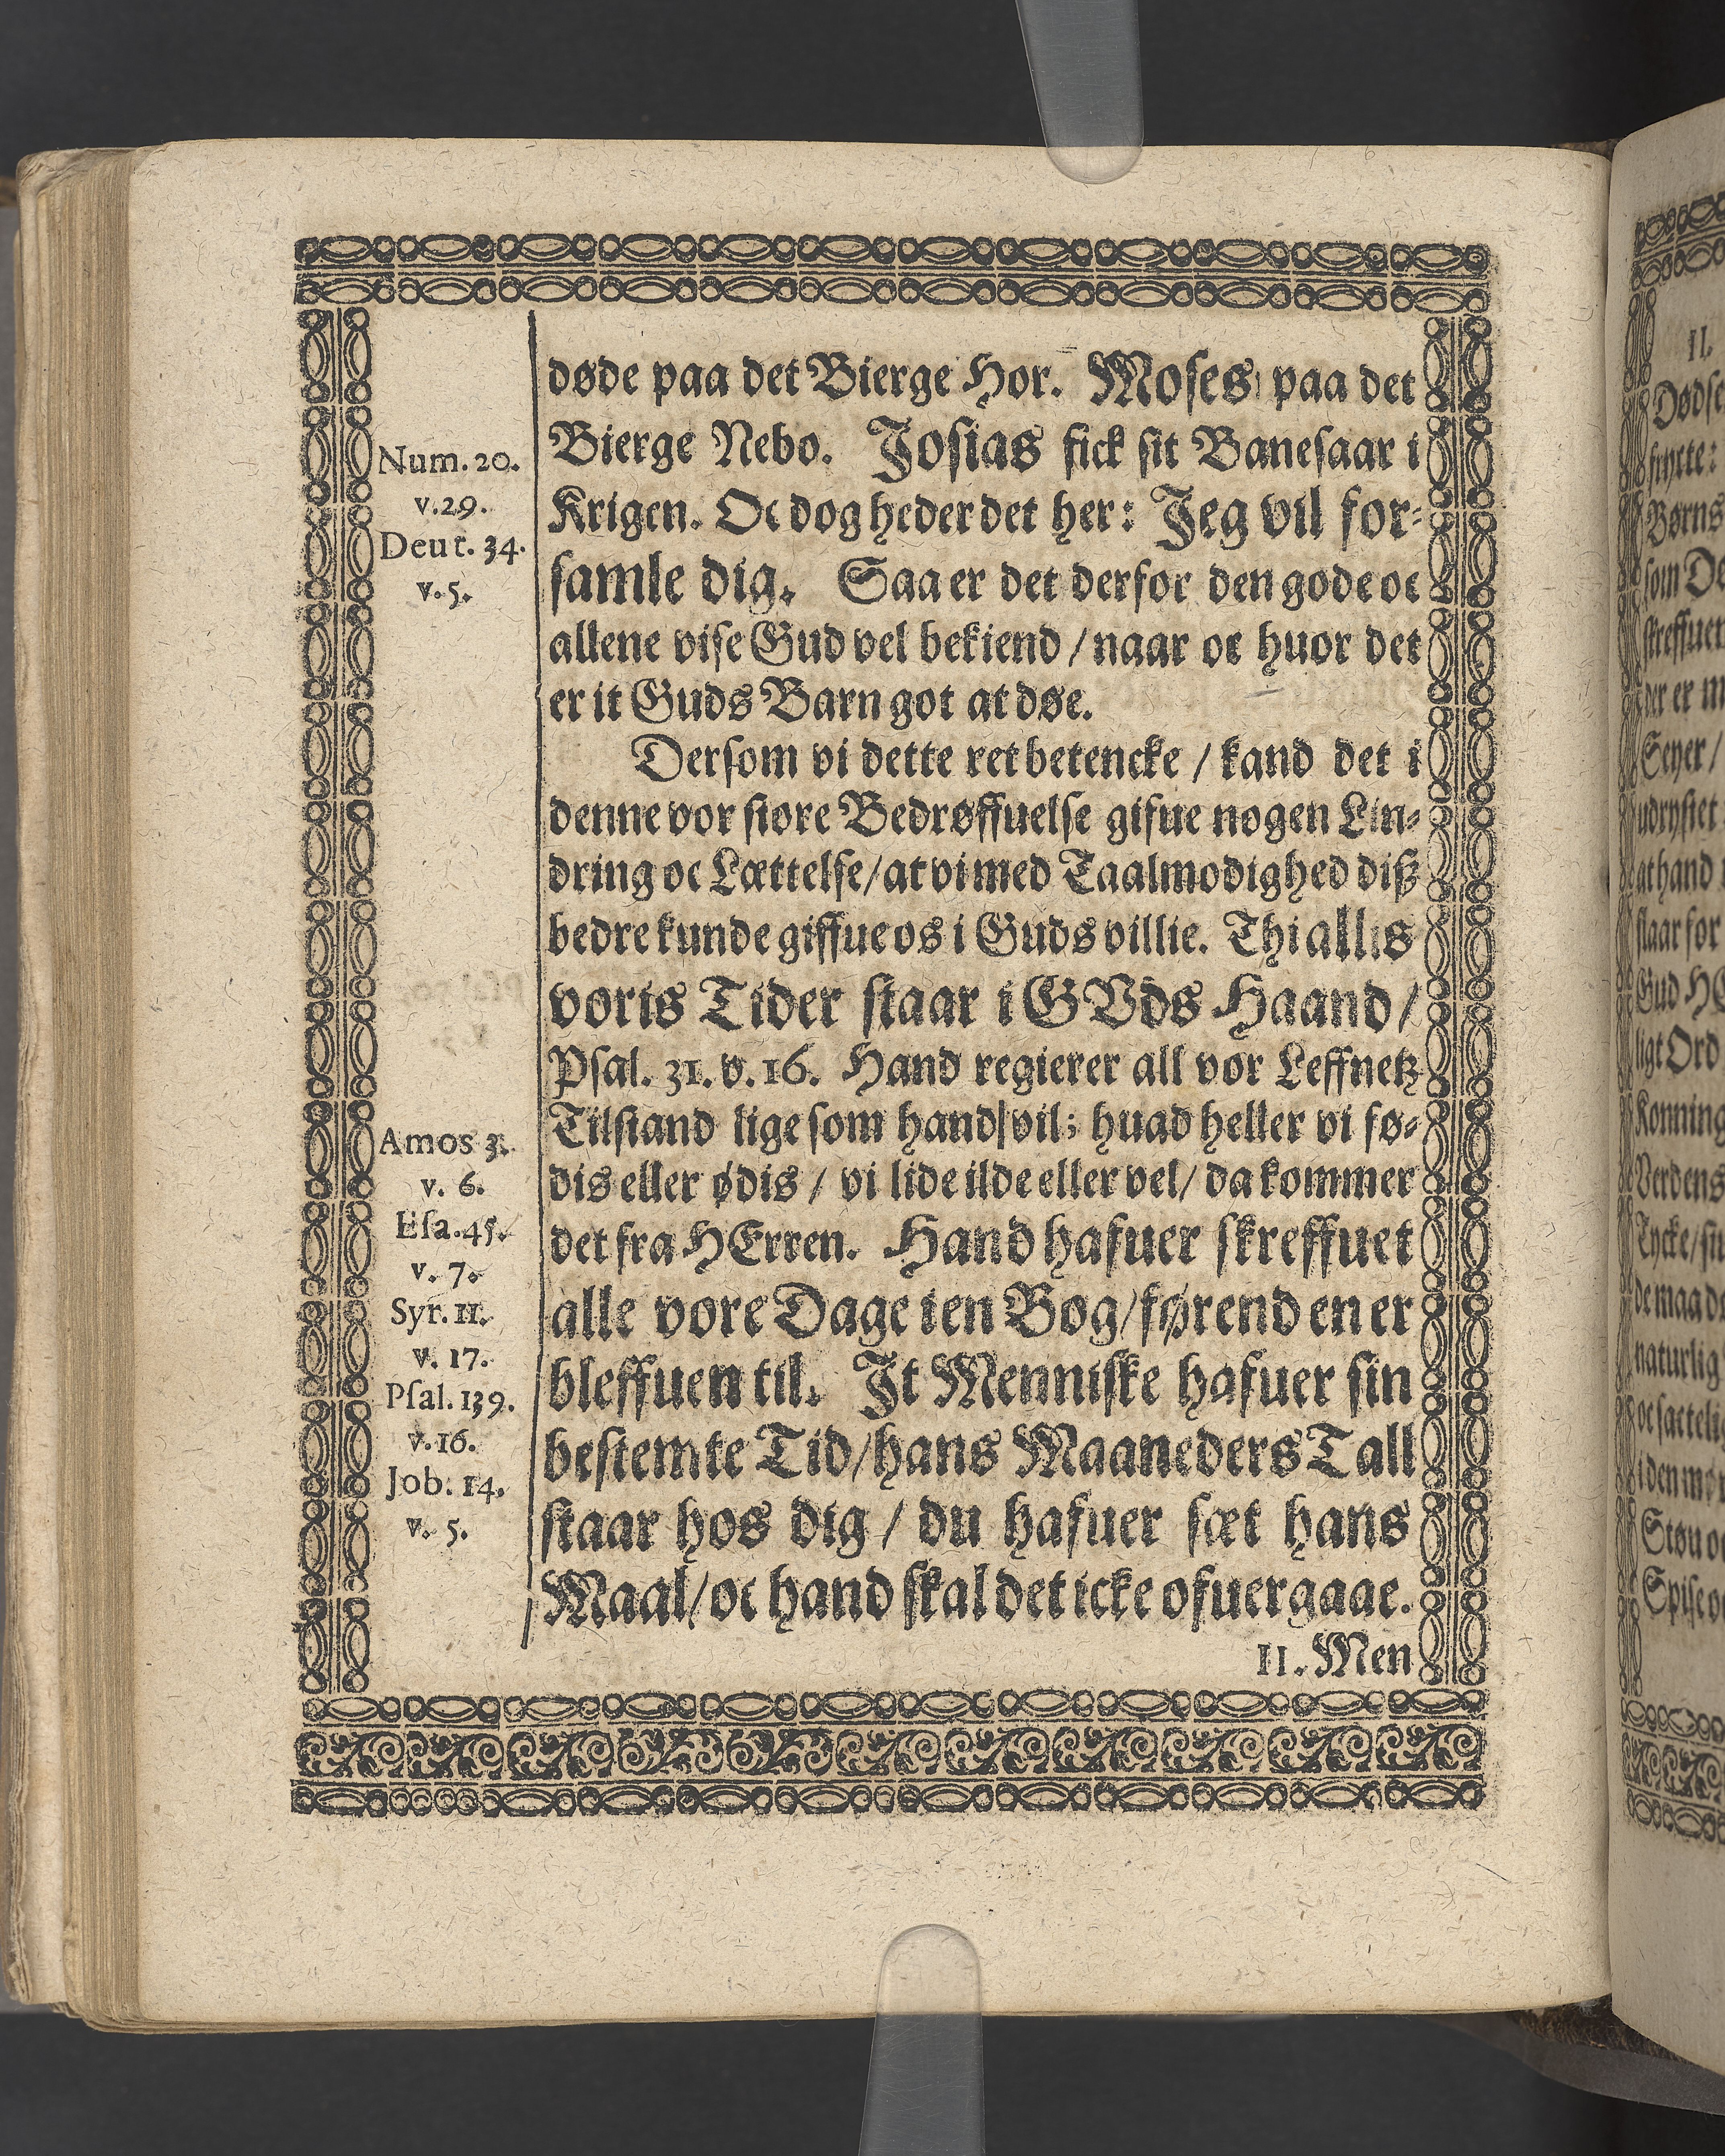 døde paa det Bierge Hor. Moses paa det
Bierge Nebo. Josias fick sit Banesaar i
Krigen. Oc dog heder det her: Jeg vil for-
samle dig. Saa er det derfor den gode oc
allene vise Gud vel bekiend / naar oc huor det
er it Guds Barn got at døe.
Dersom vi dette ret betencke / kand det i
denne vor store Bedrøffuelse gifue nogen Lin-
dring oc Lættelse / at vi med Taalmodighed diß
bedre kunde giffue os i Guds villie. Thi allis
voris Tider staar i GVds Haand /
Psal. 31. v. 16. Hand regierer all vor Leffnetz
Tilstand lige som hand vil; huad heller vi fø-
dis eller ødis / vi lide ilde eller vel / da kommer
det fra HErren. Hand hafuer skreffuet
alle vore Dage i en Bog / førend en er
bleffuen til. It Menniske hafuer sin
bestemte Tid / hans Maaneders Tall
staar hos dig / du hafuer sæt hans
Maal / oc hand skal det icke ofuergaae.
II. Men
Num. 20.
v. 29.
Deut. 34.
v. 5.
Amos 3.
v. 6.
Esa. 45.
v. 7.
Syr. 11.
v. 17.
Psal. 139.
v. 16.
Job. 14.
v. 5.
II.